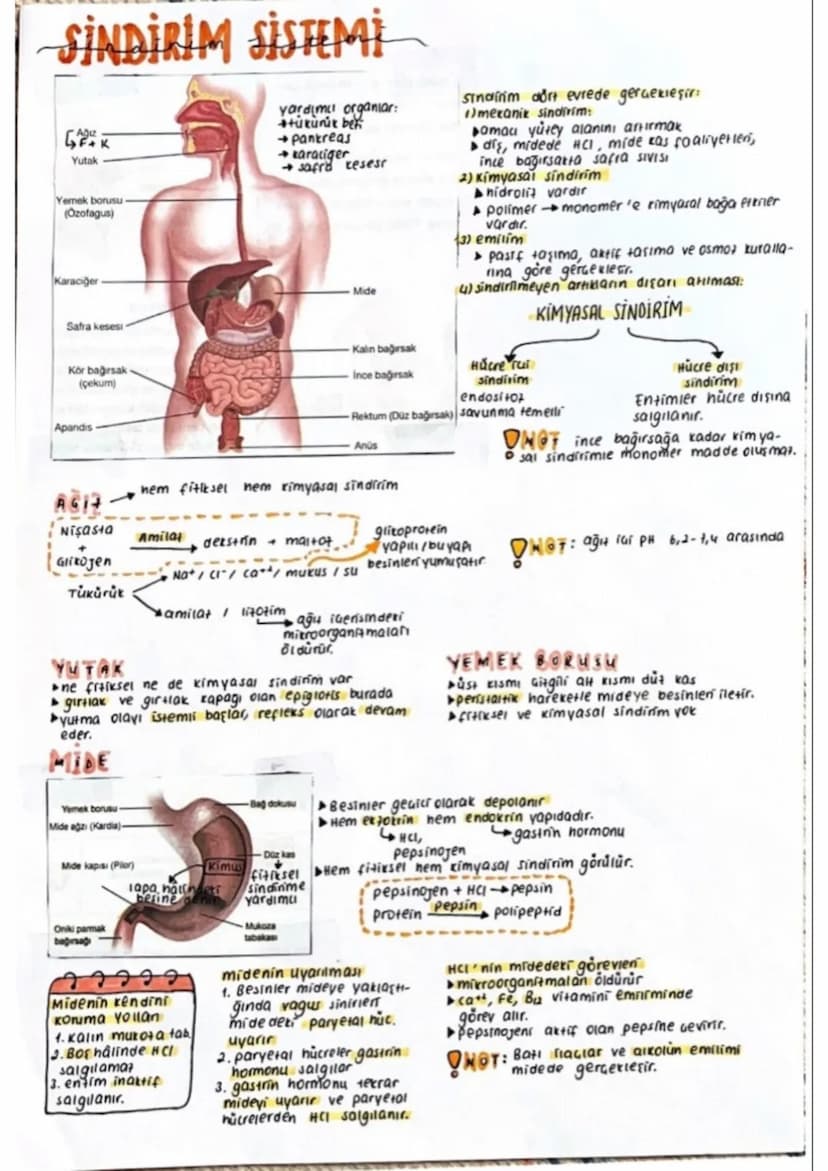 SİNDİRİM SİSTEMİ
Ağız
F + K
Yutak
Yemek borusu
(Özofagus)
Karaciğer
Safra kesesi
Kör bağırsak
(çekum)
Apandis
Mide
Kalın bağırsak
İnce bağırsak
Rektum (Düz bağırsak)
Anüs
yardımcı organlar:
→ tükürük bezi
→ pankreas
→ karaciğer
→ safra kesesi
sindirim dört evrede gerçekleşir:
1) mekanik sindirim:
▸ amacı yüzey alanını artırmak
▸ diş, midede HCl, mide kas faaliyetleri,
ince bağırsakta safra sıvısı
2) kimyasal sindirim
▸ hidroliz vardır
▸ polimer → monomer 'e kimyasal bağa etkiler
vardır.
3) emilim
▸ pasif taşıma, aktif taşıma ve osmoz kuralla-
rına göre gerçekleşir.
4) sindirilmeyen artıkların dışarı atılması:
KİMYASAL SİNDİRİM
Hücre içi
sindirim
endositoz
savunma temelli
Hücre dışı
sindirim
Enzimler hücre dışına
salgılanır.
! NOT ince bağırsağa kadar kimya-
sal sindirimle monomer madde oluşmaz.
AĞIZ → hem fiziksel hem kimyasal sindirim
Nişasta
+
Glikojen
Amilaz → dekstrin + maltoz
glikoprotein
yapılı / bu yapı
besinleri yumuşatır
Tükürük
Na+ / Cl- / Ca++ / mukus / su
amilaz / lizozim
→ ağız içerisindeki
mikroorganizmaları
öldürür.
! NOT: ağız içi PH 6,2-7,4 arasında
YUTAK
▸ ne fiziksel ne de kimyasal sindirim var
▸ gırtlak ve gırtlak kapağı olan epiglotis burada
▸ yutma olayı istemli başlar, refleks olarak devam
eder.
YEMEK BORUSU
▸ üst kısmı çizgili alt kısmı düz kas
▸ peristaltik hareketle mideye besinleri iletir.
▸ fiziksel ve kimyasal sindirim yok
MİDE
Yemek borusu
Mide ağzı (Kardia)
Mide kapısı (Pilor)
Oniki parmak
bağırsağı
Bağ dokusu
Düz kas
fiziksel
sindirime
yardımcı
Mukoza
tabakası
Kimus
lapa hâlindeki
besine denir
▸ Besinler geçici olarak depolanır
▸ Hem ekzokrin hem endokrin yapıdadır.
↳ HCl,
pepsinojen
↳ gastrin hormonu
▸ Hem fiziksel hem kimyasal sindirim görülür.
pepsinojen + HCl → pepsin
protein pepsin → polipeptid
Midenin kendini
koruma yolları
1. Kalın mukoza tab.
2. Boş hâlinde HCl
salgılamaz
3. enzim inaktif
salgılanır.
midenin uyarılması
1. Besinler mideye yaklaştı-
ğında vagus sinirleri
mide deki paryetal hüc.
uyarır
2. paryetal hücreler gastrin
hormonu salgılar
3. gastrin hormonu tekrar
mideyi uyarır ve paryetal
hücrelerden HCl salgılanır.
HCl 'nin midedeki görevleri
▸ mikroorganizmaları öldürür
▸ Ca++, Fe, B12 vitamini emiliminde
görev alır.
▸ pepsinojeni aktif olan pepsine çevirir.
! NOT: Bazı ilaçlar ve alkolün emilimi
midede gerçekleşir.